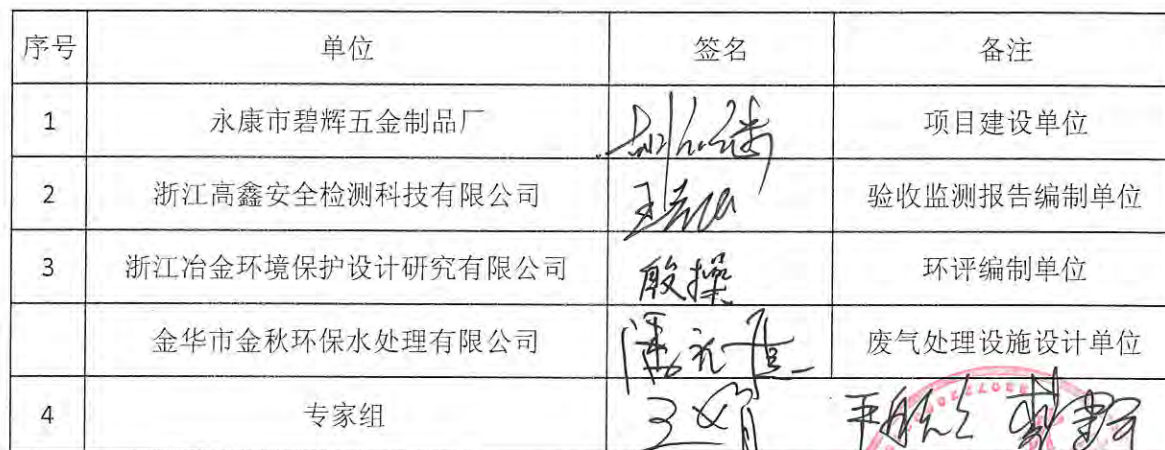 序号 单位 签名 备注
1 永康市碧辉五金制品厂 项目建设单位
2 浙江高鑫安全检测科技有限公司 验收监测报告编制单位
3 浙江冶金环境保护设计研究有限公司 殷操 环评编制单位
金华市金秋环保水处理有限公司 废气处理设施设计单位
4 专家组